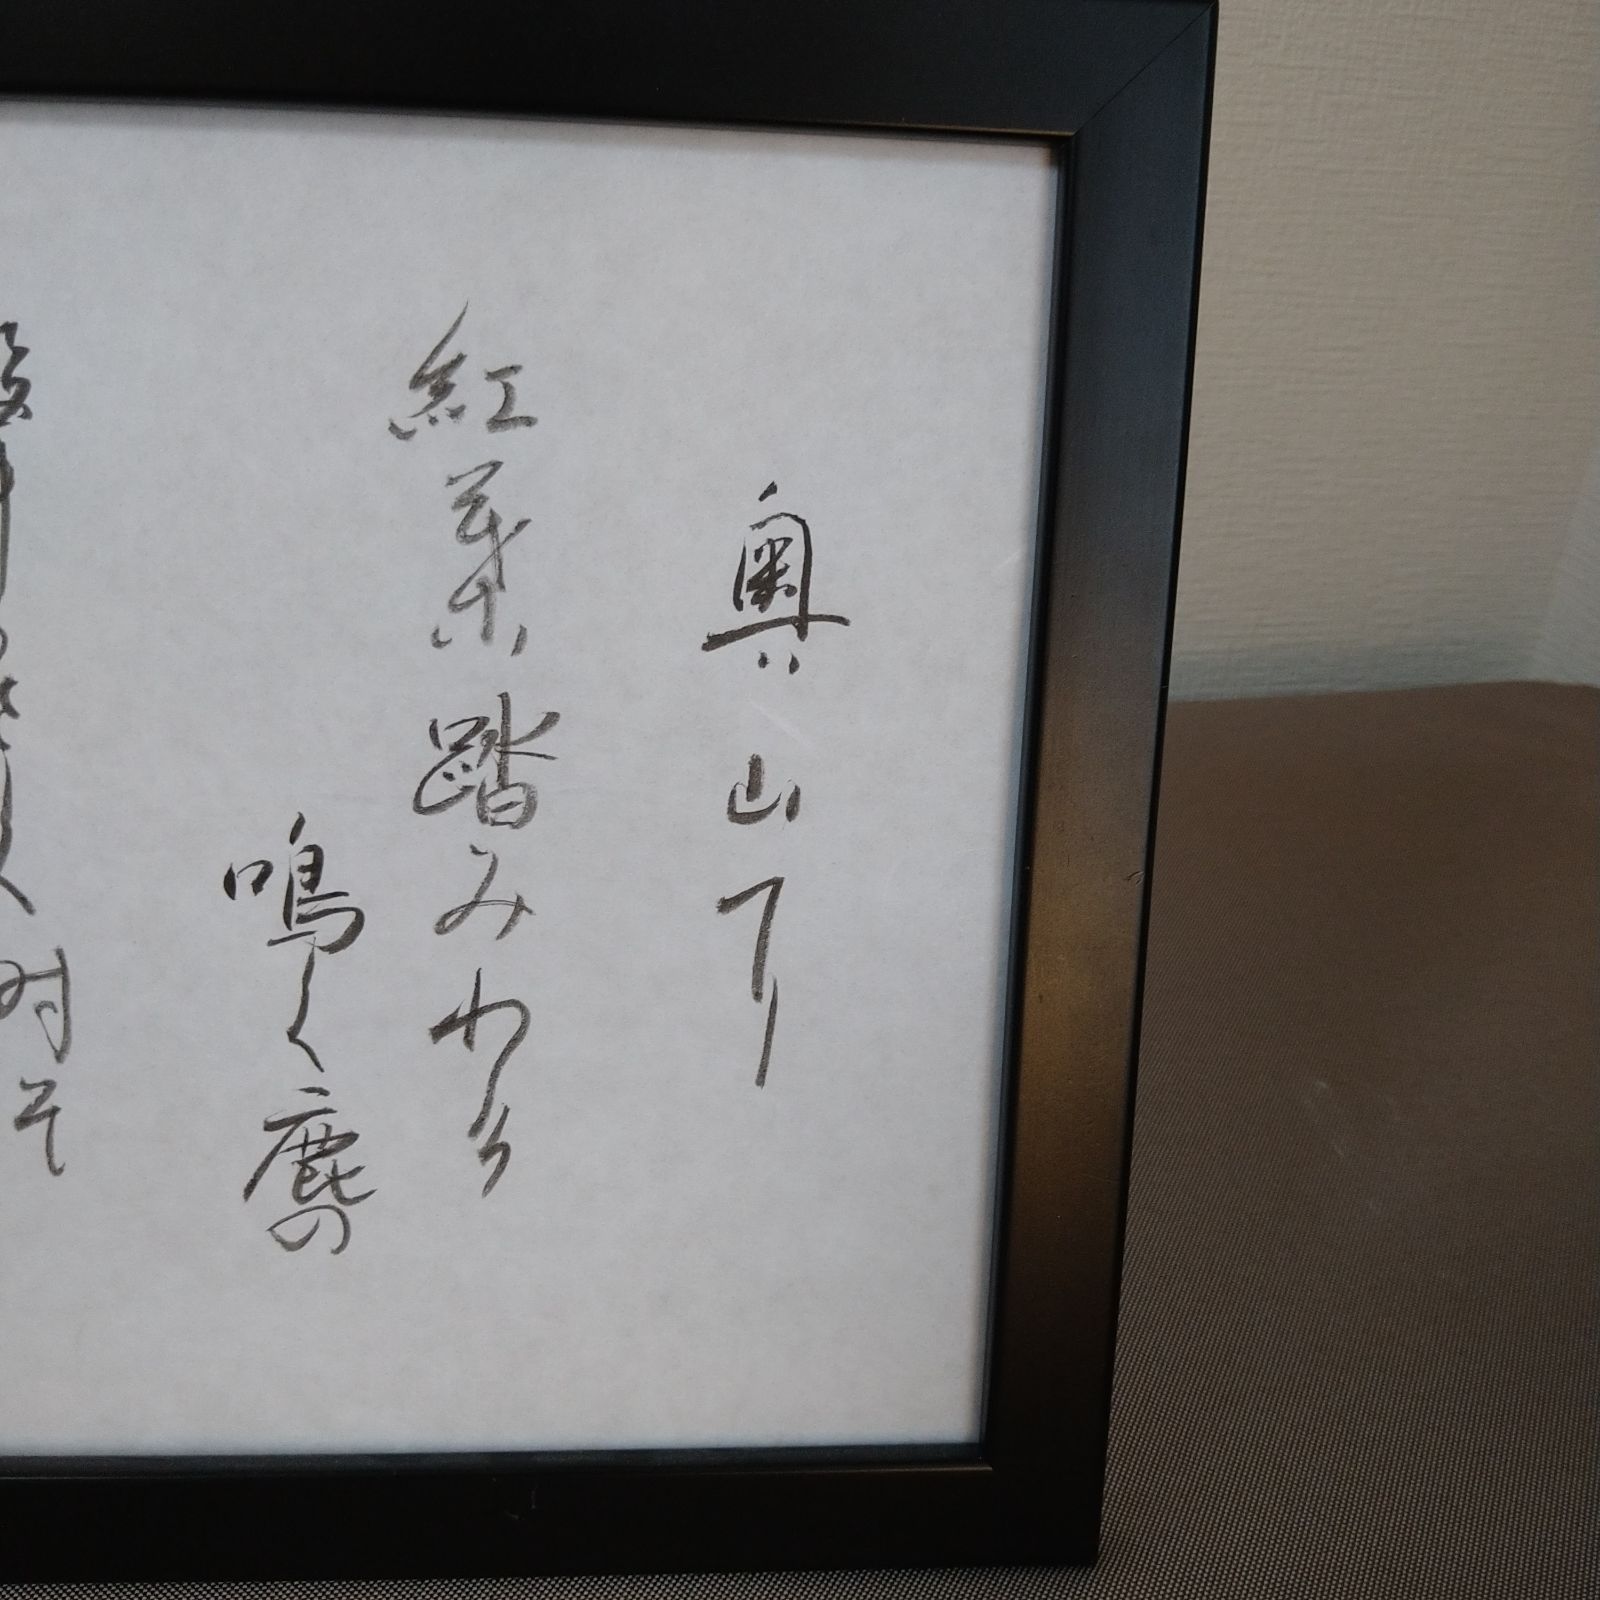 奥山に
紅葉踏みわけ
鳴く鹿の
時そ